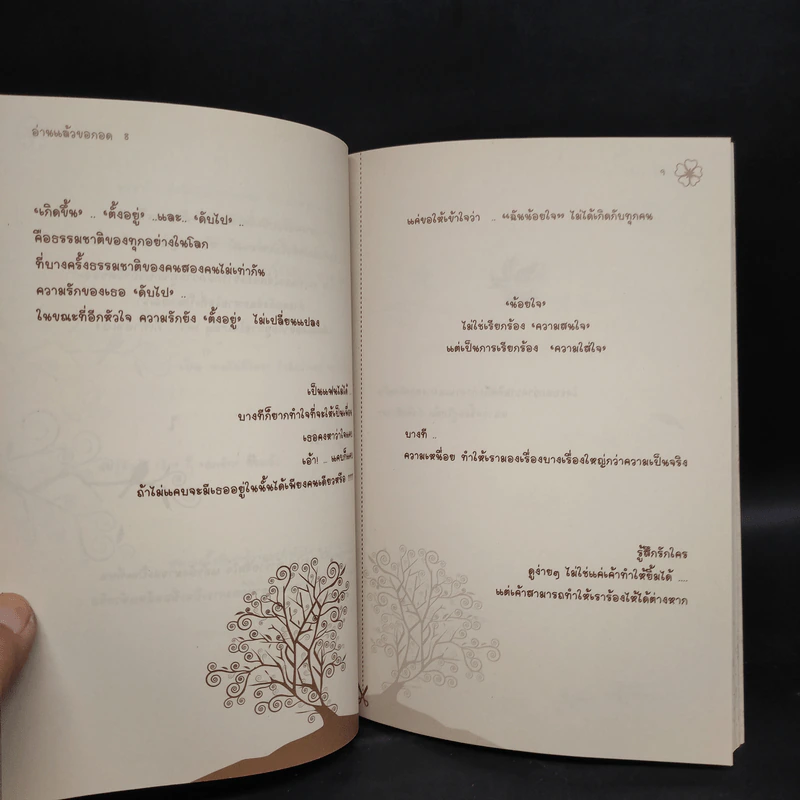 อ่านแล้วขอกอด ๘
'เกิดขึ้น' .. 'ตั้งอยู่' ..และ.. 'ดับไป' ..
คือธรรมชาติของทุกอย่างในโลก
ที่บางครั้งธรรมชาติของคนสองคนไม่เท่ากัน
ความรักของเธอ 'ดับไป' ..
ในขณะที่อีกหัวใจ ความรักยัง 'ตั้งอยู่' ไม่เปลี่ยนแปลง
เป็นแฟนไม่ได้ ..
บางทีก็ยากทำใจที่จะให้เป็นเพื่อน
เธอคงหาว่าใจแคบ
เอ้า! .. แคบก็แคบ
ถ้าไม่แคบจะมีเธออยู่ในนั้นได้เพียงคนเดียวหรือ ???
๙
แค่ขอให้เข้าใจว่า .. "ฉันน้อยใจ" ไม่ได้เกิดกับทุกคน
'น้อยใจ'
ไม่ใช่เรียกร้อง 'ความสนใจ'
แต่เป็นการเรียกร้อง 'ความใส่ใจ'
บางที ..
ความเหนื่อย ทำให้เรามองเรื่องบางเรื่องใหญ่กว่าความเป็นจริง
รู้สึกรักใคร
ดูง่ายๆ ไม่ใช่แค่เค้าทำให้ยิ้มได้ ....
แต่เค้าสามารถทำให้เราร้องไห้ได้ต่างหาก